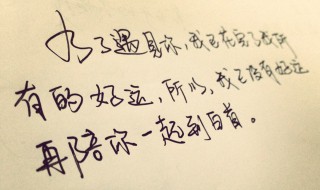 为了遇见你,我已了我所
有的好运,所以,我已没有好运
再陪你一起到白首。